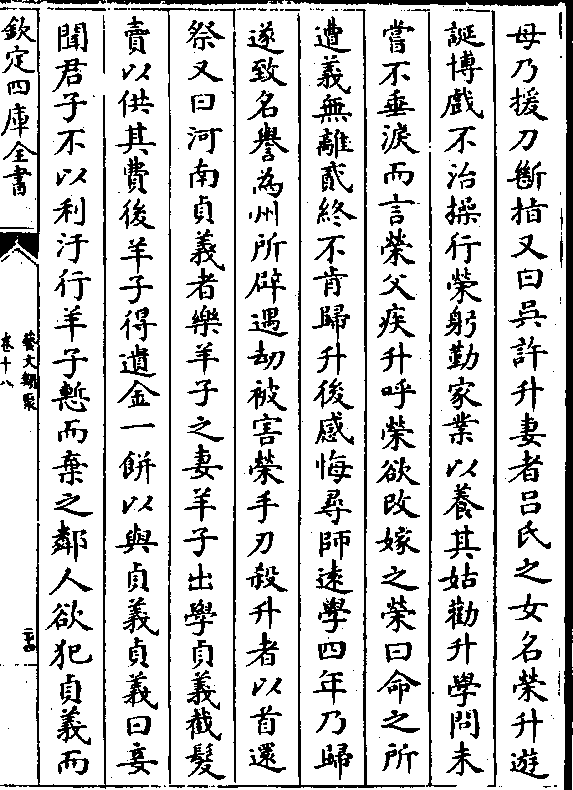 母乃援刀斷指又曰吳許升妻者吕氏之女名榮升遊
誕博戲不治操行榮躬勤家業以養其姑勸升學問未
嘗不垂淚而言榮父疾升呼榮欲改嫁之榮曰命之所
遭義無離貳終不肯歸升後感悔尋師逺學四年乃歸
遂致名譽為州所辟遇劫被害榮手刃殺升者以首還
祭又曰河南貞義者樂羊子之妻羊子出學貞義截髮
賣以供其費後羊子得遺金一餅以與貞義貞義曰妾
聞君子不以利汙行羊子慙而棄之鄰人欲犯貞義而
欽定四庫全書
藝文類聚
卷十八